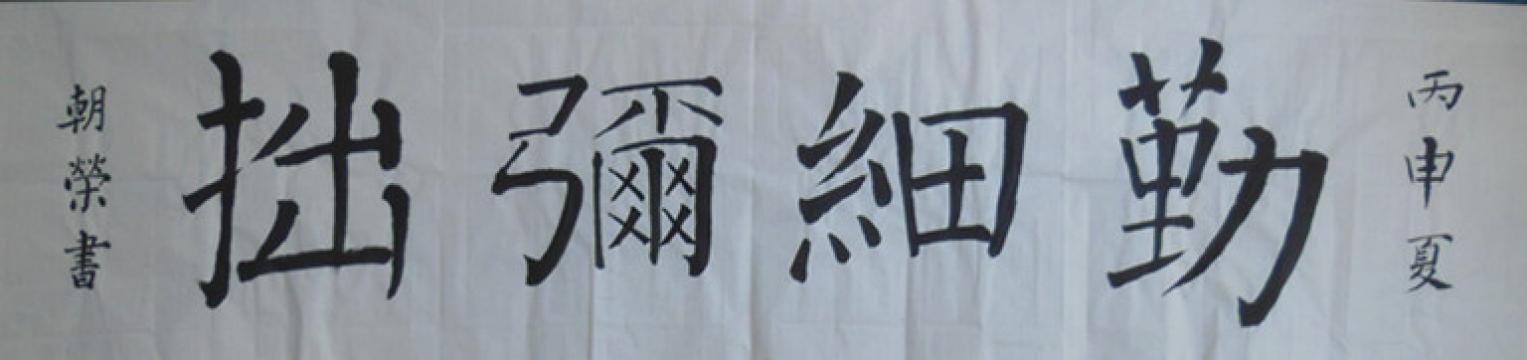 丙申夏
勤細彌拙
朝榮書